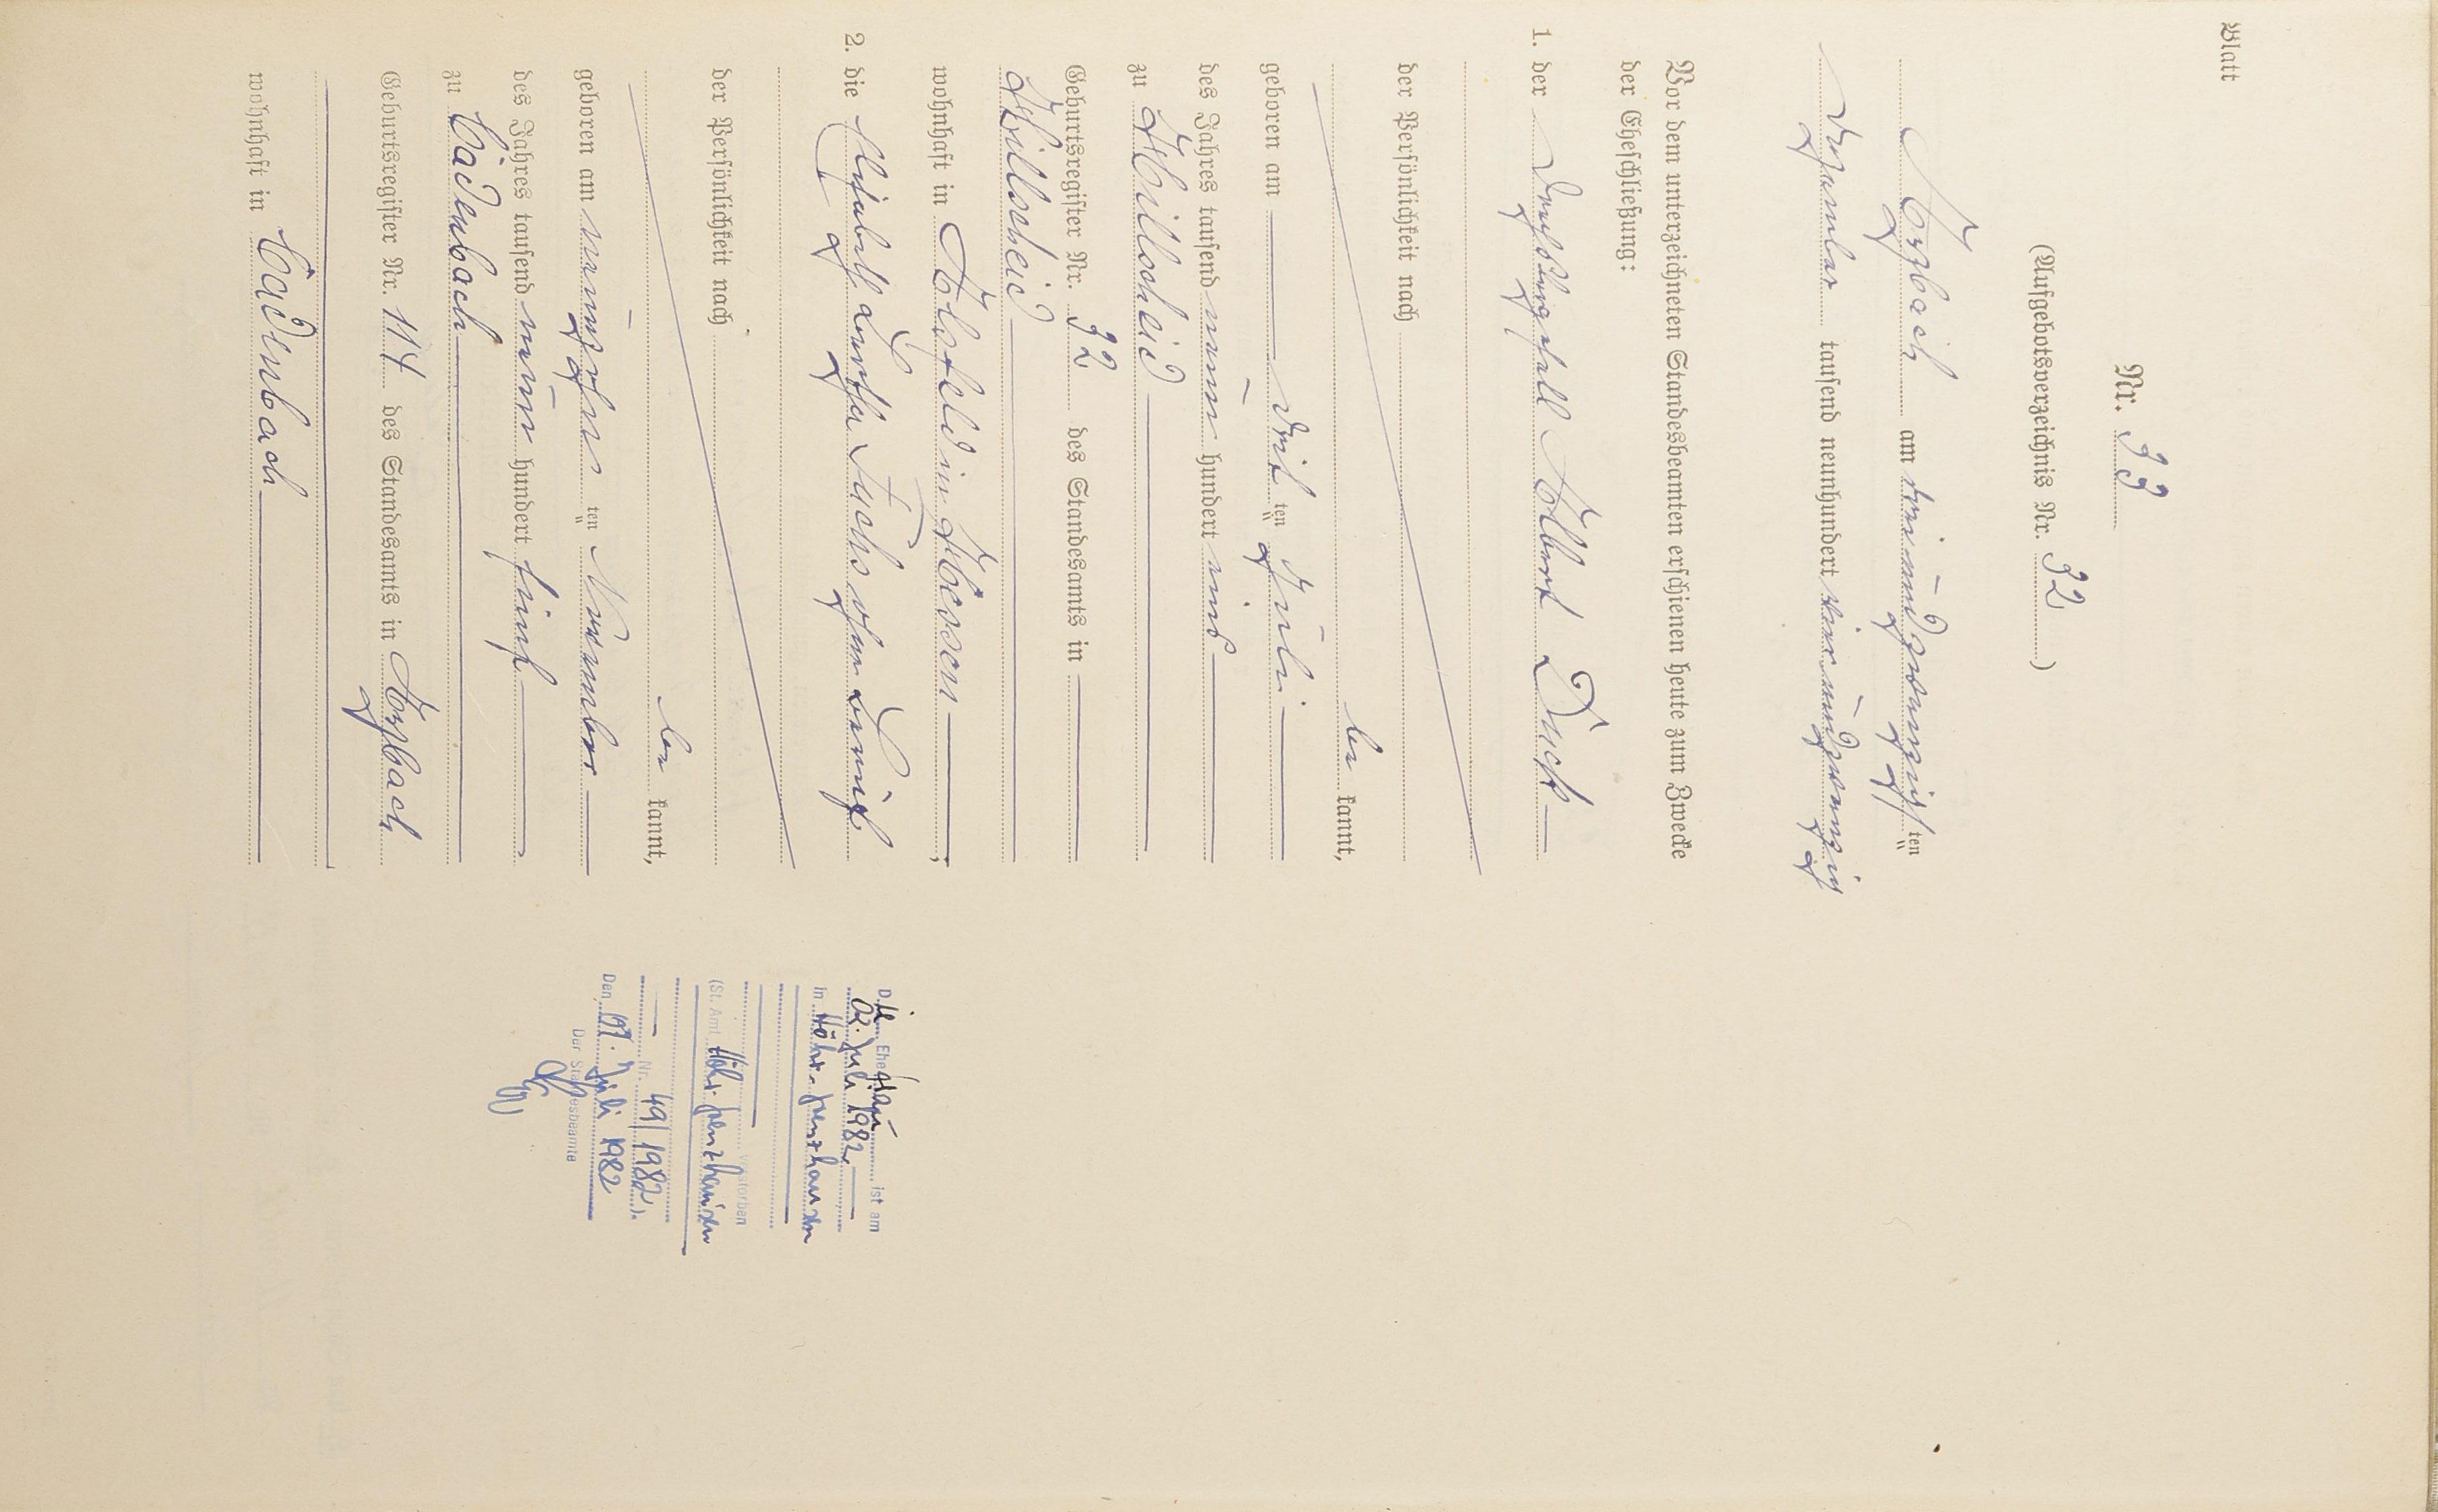 Blatt
Nr. 33
(Aufgebotsverzeichnis Nr. 32)
Arzbach am dreiundzwanzigsten
Dezember tausend neunhundert vierundzwanzig
Vor dem unterzeichneten Standesbeamten erschienen heute zum Zwecke
der Eheschließung:
1. der Albert Duck
der Persönlichkeit nach
be kannt,
geboren am drit ten Juli
des Jahres tausend neun hundert eins
zu Hillscheid
Geburtsregister Nr. 32 des Standesamts in
Hillscheid
wohnhaft in Alsfeld in Hessen,
2. die Elisabeth Fuchs ohne Beruf
der Persönlichkeit nach
be kannt,
geboren am neunzehn ten November
des Jahres tausend neun hundert fünf
zu Cadenbach
Geburtsregister Nr. 114 des Standesamts in Arzbach
wohnhaft in Cadenbach
Die Ehefrau ist am
02. Juli 1982
in Höhr-Grenzhausen
verstorben
(St. Amt Höhr-Grenzhausen
Nr. 49/1982).
Den 07. Juli 1982
Der Standesbeamte